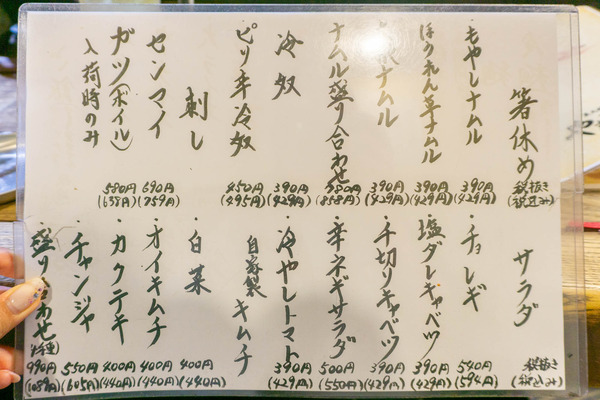 箸休め 税抜き (税込み)
・もやしナムル 390円 (429円)
・ほうれん草ナムル 390円 (429円)
ナムル 390円 (429円)
ナムル盛り合わせ 780円 (858円)
・冷奴 390円 (429円)
・ピリ辛冷奴 450円 (495円)
刺し
・センマイ 690円 (759円)
・ガツ(ボイル) 580円 (638円)
入荷時のみ
サラダ 税抜き (税込み)
・チョレギ 540円 (594円)
・塩ダレキャベツ 390円 (429円)
・千切りキャベツ 390円 (429円)
・辛ネギサラダ 500円 (550円)
・冷やしトマト 390円 (429円)
自家製キムチ
・白菜 400円 (440円)
・オイキムチ 400円 (440円)
・カクテキ 400円 (440円)
・チャンジャ 550円 (605円)
・盛り合わせ 990円 (1089円)